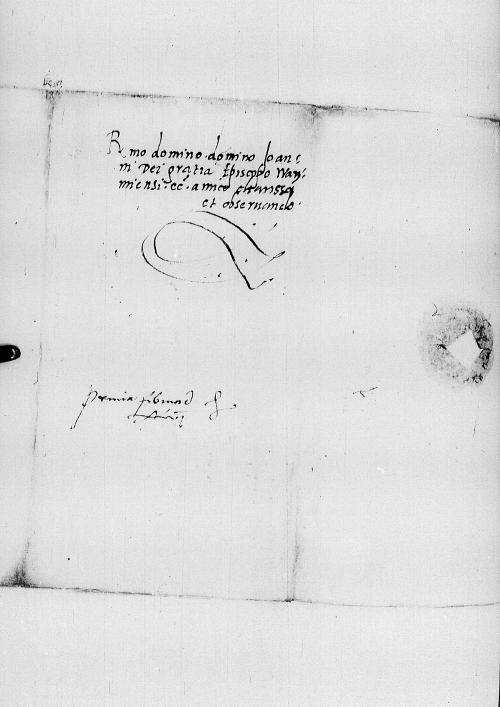 Rmo domino domino Joan:
ni Dei gratia Episcopo War:
miensi ec. amico charissο
et observando